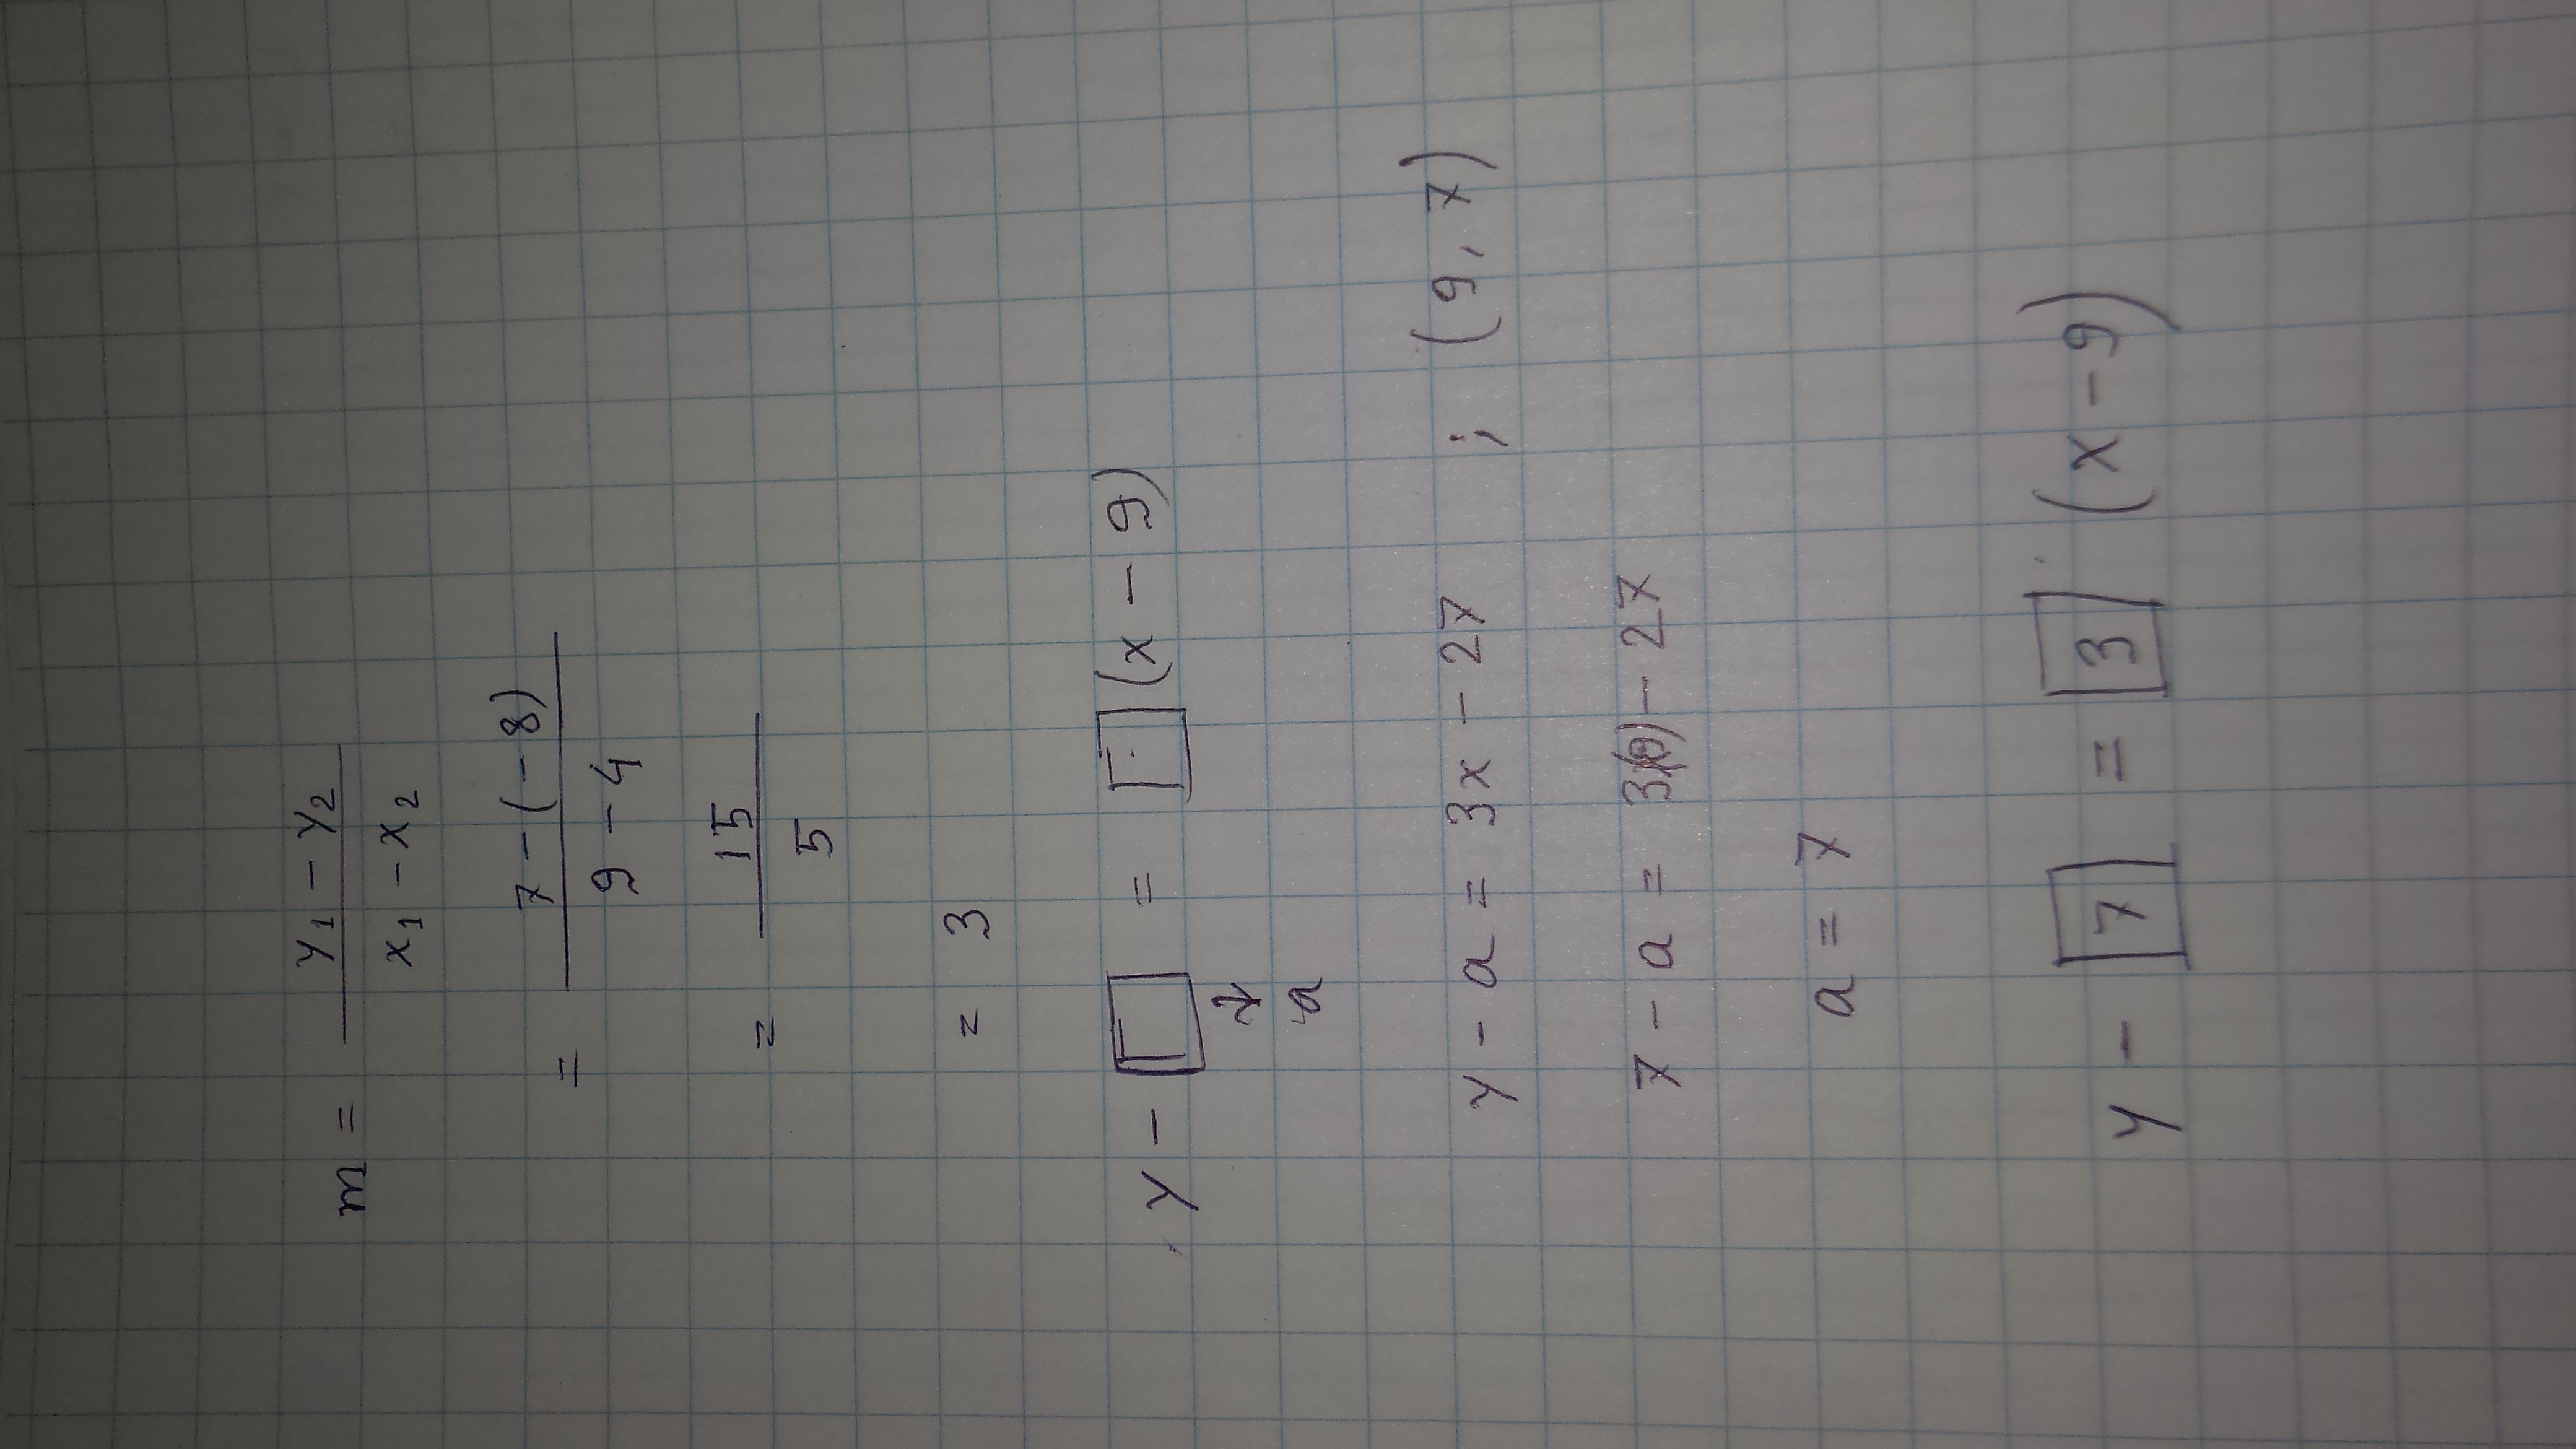 m = y₁ - y₂ / x₁ - x₂
= 7 - (-8) / 9 - 4
= 15 / 5
= 3
y - □ = □ (x - 9)
↓
a
y - a = 3x - 27 ; (9, 7)
7 - a = 3(9) - 27
a = 7
y - 7 = 3 (x - 9)